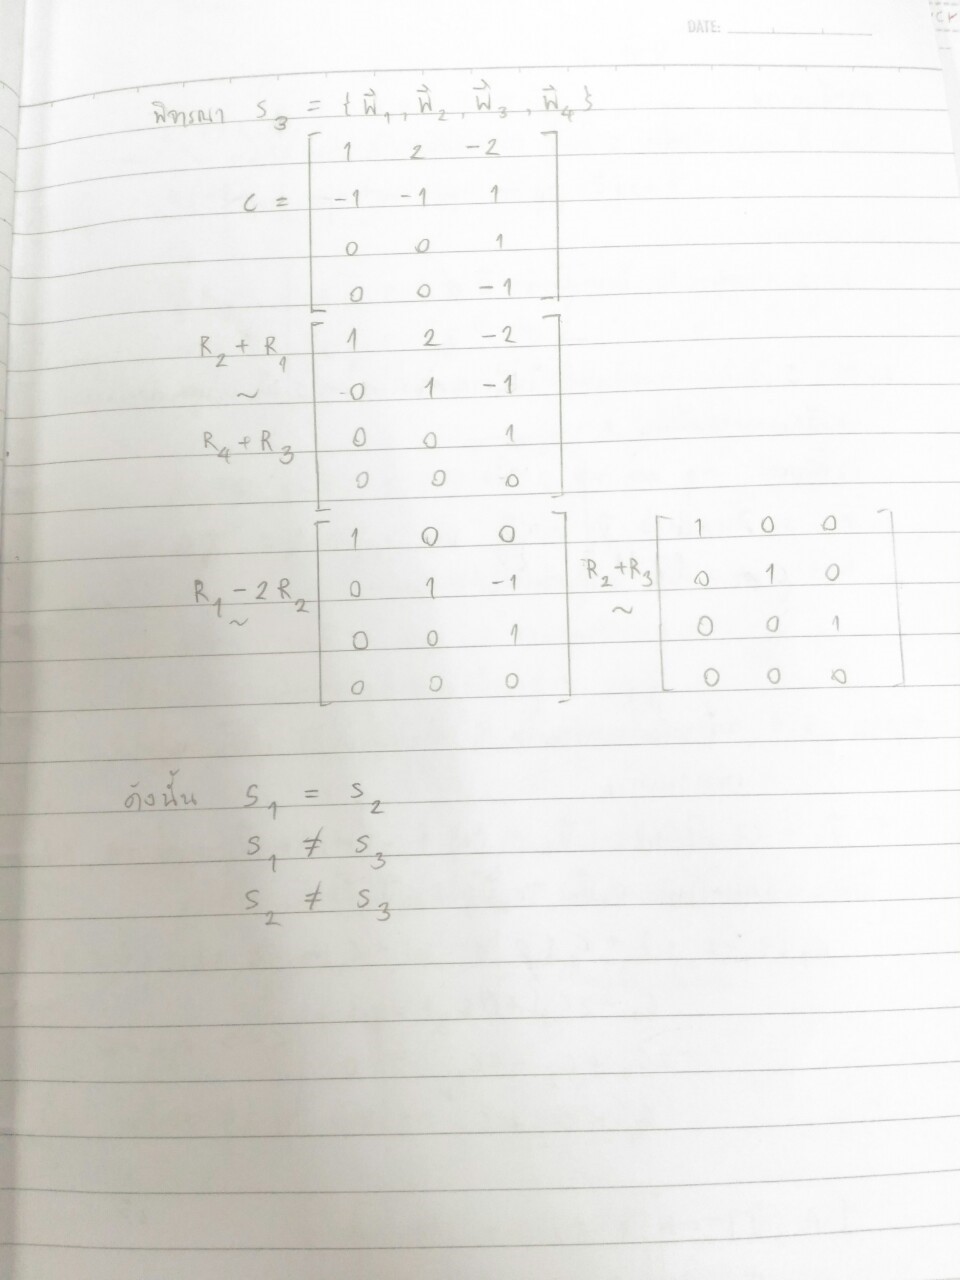 DATE:
พิจารณา S₃ = { w⃗₁, w⃗₂, w⃗₃, w⃗₄ }
1 2 -2
C = -1 -1 1
0 0 1
0 0 -1
R₂ + R₁ 1 2 -2
~ 0 1 -1
R₄ + R₃ 0 0 1
0 0 0
1 0 0
R₁ - 2R₂ 0 1 -1
~ 0 0 1
0 0 0
1 0 0
R₂+R₃ 0 1 0
~ 0 0 1
0 0 0
ดังนั้น S₁ = S₂
S₁ ≠ S₃
S₂ ≠ S₃